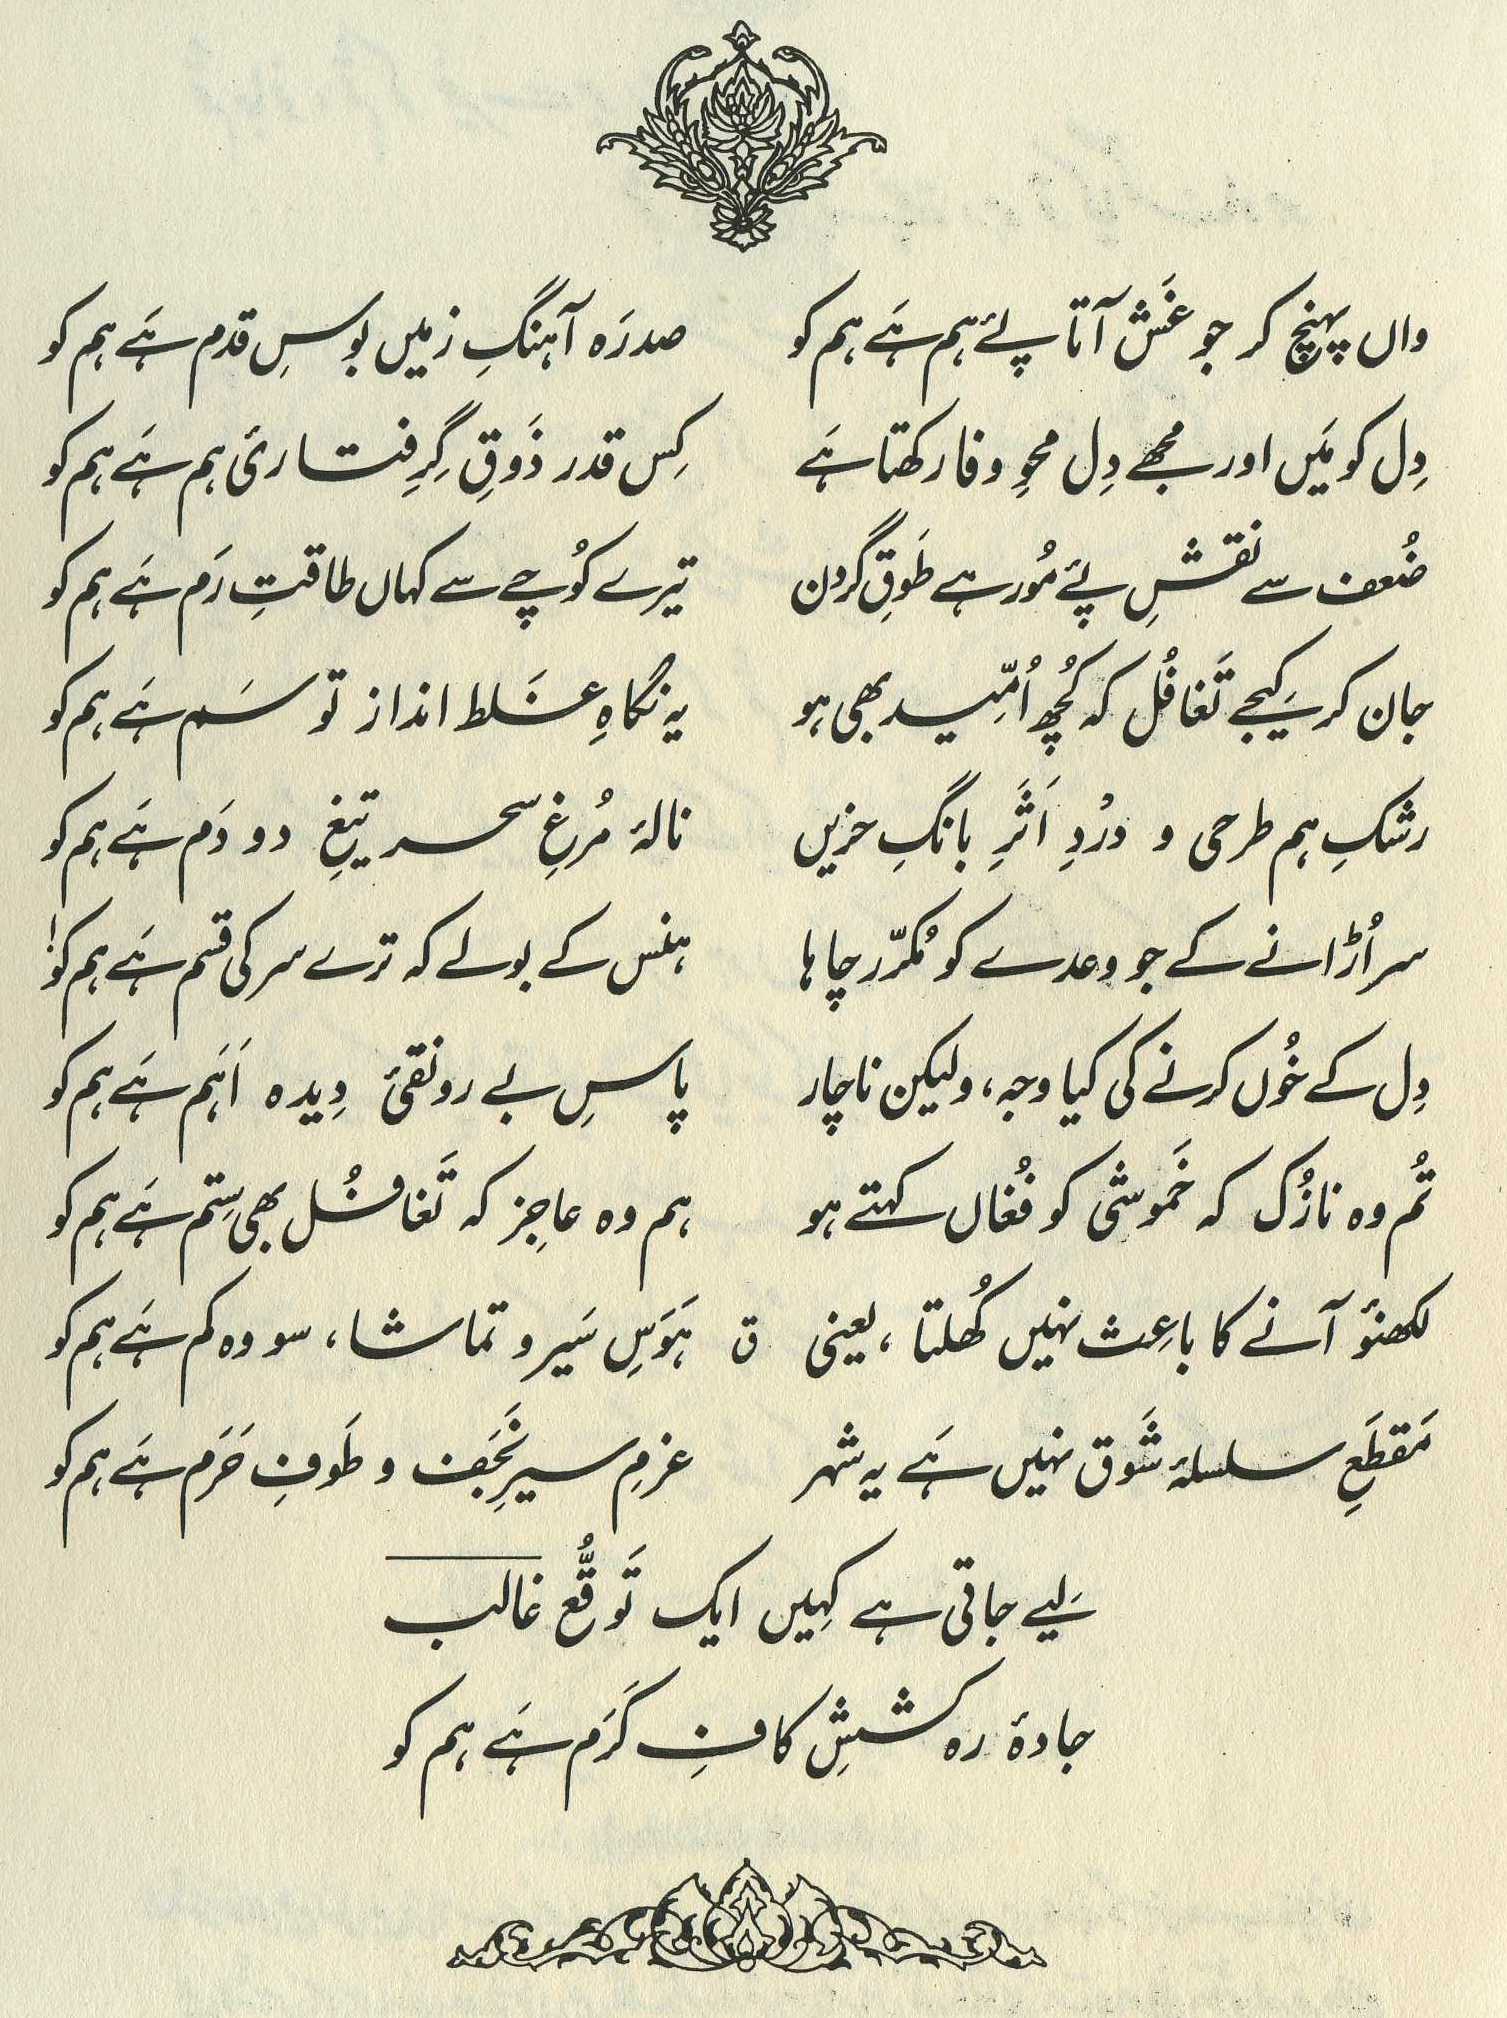 واں پہنچ کر جو غَش آتا پئے ہم ہَے ہم کو صدرَہ آہنگِ زمیں بوسِ قدم ہَے ہم کو
دِل کو مَیں اور مجھے دِل محوِ وفا رکھتا ہَے کِس قدر ذَوقِ گِرِفتاریٔ ہم ہَے ہم کو
ضُعف سے نقشِ پئے مُور ہے طَوقِ گردن تیرے کُوچے سے کہاں طاقتِ رَم ہَے ہم کو
جان کر کیجے تَغافُل کہ کُچھ اُمّید بھی ہو یہ نگاہِ غَلط انداز تو سَم ہَے ہم کو
رشکِ ہم طرحی و دردِ اَثَرِ بانگِ حزیں نالۂ مُرغِ سحر تیغِ دو دَم ہَے ہم کو
سر اُڑانے کے جو وعدے کو مُکرّر چاہا ہنس کے بولے کہ ترے سر کی قسم ہَے ہم کو!
دِل کے خُوں کرنے کی کیا وجہ، ولیکن ناچار پاسِ بے رونقیٔ دِیدہ اَہَم ہَے ہم کو
تُم وہ نازُک کہ خَموشی کو فُغاں کہتے ہو ہم وہ عاجِز کہ تَغافُل بھی سِتم ہَے ہم کو
لکھنؤ آنے کا باعِث نہیں کُھلتا ، یعنی ق ہَوَسِ سَیر و تماشا ، سو وہ کم ہَے ہم کو
مَقطَعِ سلسلۂ شَوق نہیں ہَے یہ شہر عزمِ سیرِ نَجَف و طَوفِ حَرَم ہَے ہم کو
لَیے جاتی ہے کہیں ایک تَوقُّع غالب
جادۂ رہ کششِ کافِ کَرَم ہَے ہم کو